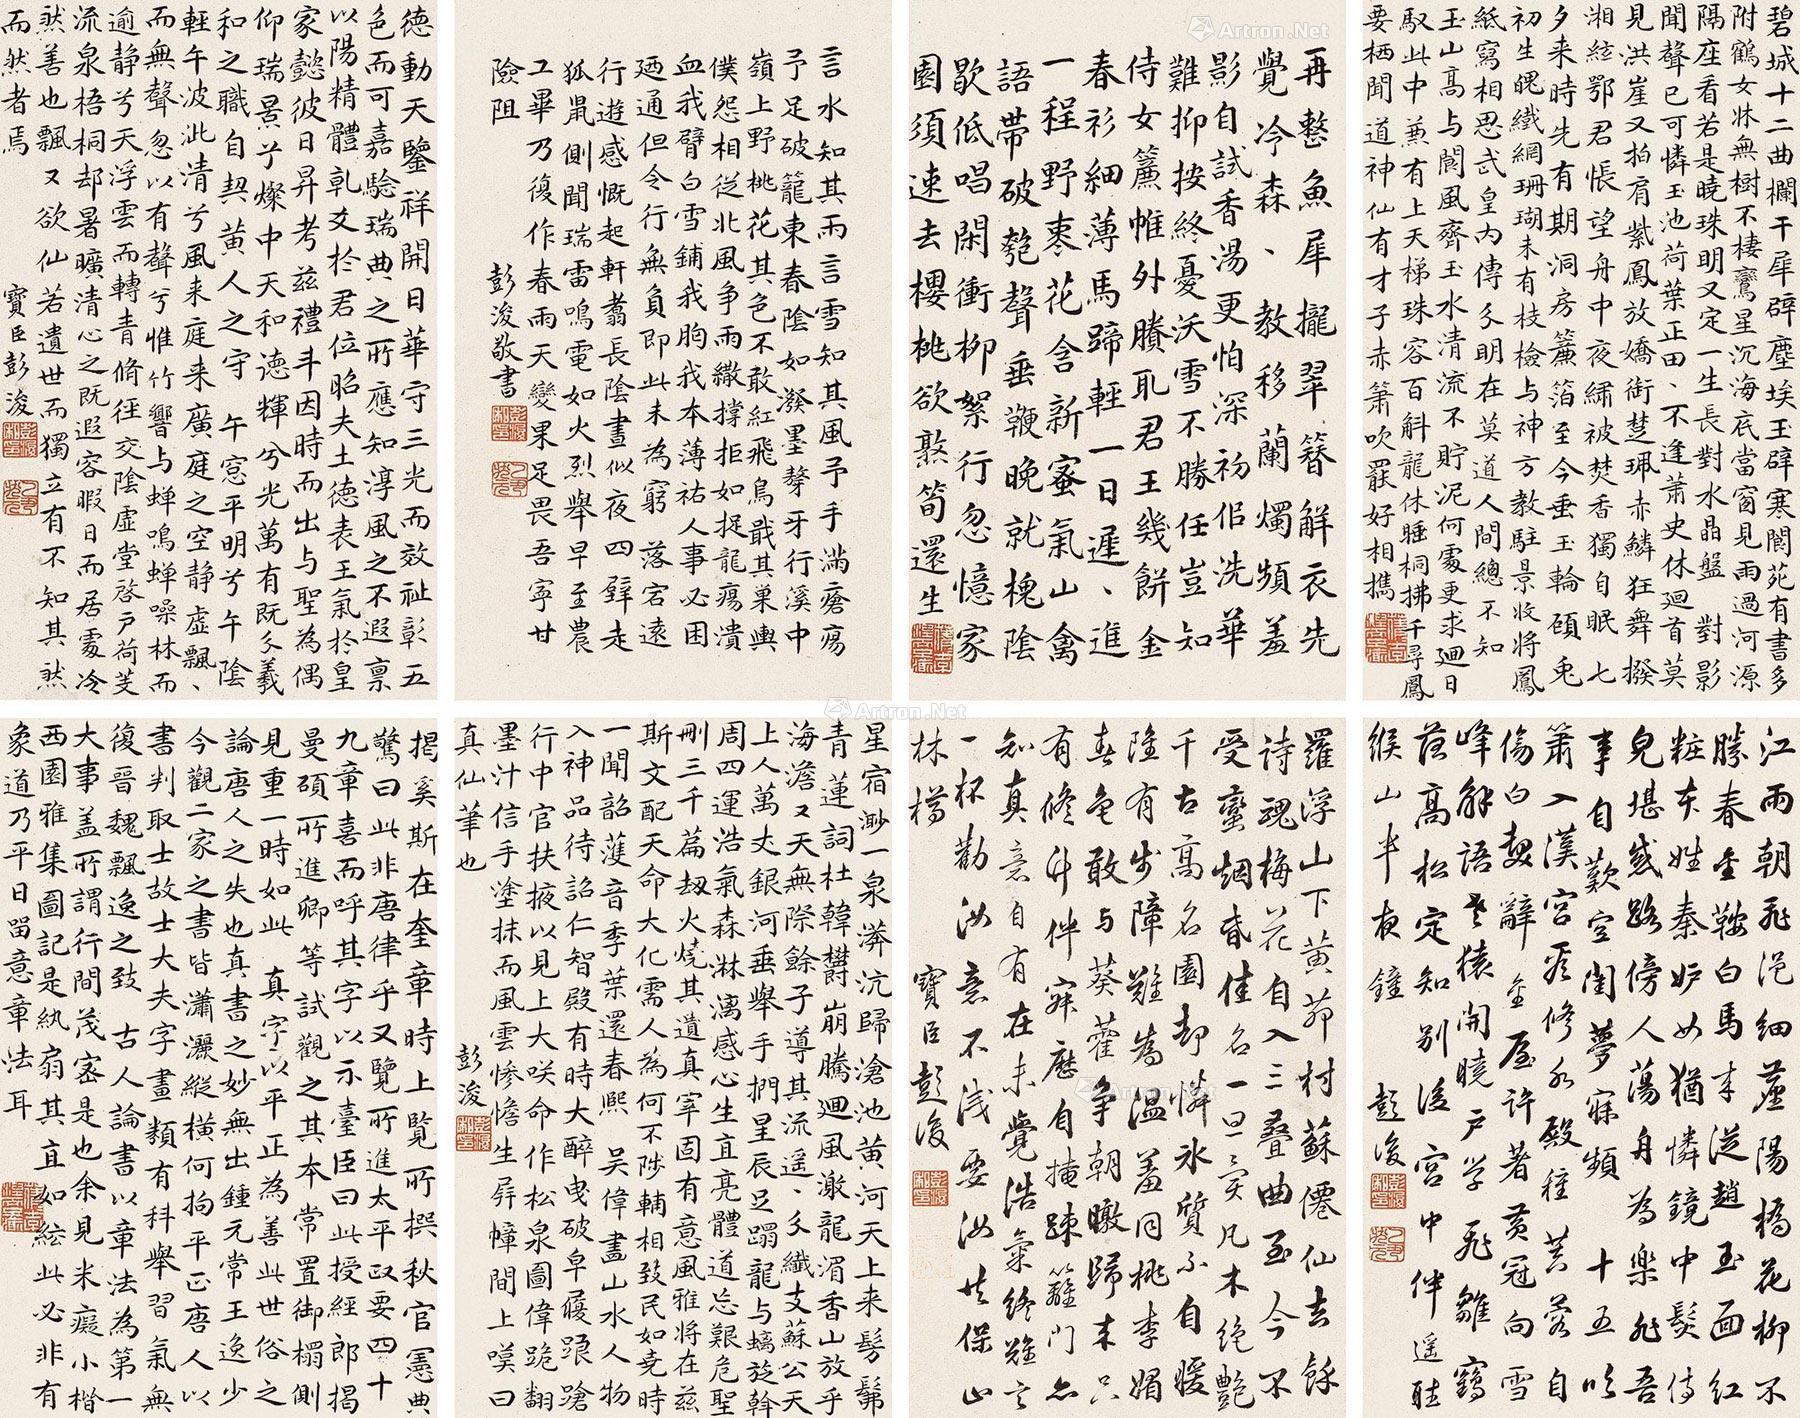 碧城十二曲欄干犀辟塵埃玉辟寒閬苑有書多
附鶴女牀無樹不棲鸞星沉海底當窗見雨過河源
隔座看若是曉珠明又定一生長對水晶盤 對影
聞聲已可憐玉池荷葉正田、不逢蕭史休迴首莫
見洪崖又拍肩紫鳳放嬌銜楚珮赤鱗狂舞撥
湘絃鄂君悵望舟中夜繡被焚香獨自眠 七
夕来時先有期洞房簾箔至今垂玉輪顧兔
初生魄鐵網珊瑚未有枝檢与神方教駐景收將鳳
紙寫相思武皇內傳分明在莫道人間總不知
玉山高与閬風齊玉水清流不貯泥何處更求迴日
馭此中兼有上天梯珠容百斛龍休睡桐拂千尋鳳
要栖聞道神仙有才子赤簫吹罷好相攜
再整魚犀攏翠簪解衣先
覺冷森、教移蘭燭頻羞
影自試香湯更怕深初佀洗華
難抑按終憂沃雪不勝任豈知
侍女簾帷外賸取君王幾餅金
春衫細薄馬蹄輕一日遲、進
一程野棗花含新蜜氣山禽
語帶破匏聲垂鞭晚就槐陰
歇低唱閑衝柳絮行忽憶家
園須速去櫻桃欲熟筍還生
言水知其雨言雪知其風予手滿瘡瘍
予足破籠東春陰如潑墨聱牙行溪中
嶺上野桃花其色不敢紅飛鳥戢其巢輿
僕怨相從北風争雨繖撐拒如捉龍瘍潰
血我臂白雪鋪我胸我本薄祐人事必困
廼通但令行無負即此未為窮 落宕遠
行遊感慨起軒翥長陰晝似夜四壁走
狐鼠側聞瑞雷鳴電如火烈舉早至農
工畢乃復作春雨天變果足畏吾寧甘
險阻 彭浚敬書
德動天鑒祥開日華守三光而效祉彰五
色而可嘉驗瑞典之所應知淳風之不遐稟
以陽精體乹爻於君位昭夫土德表王氣於皇
家懿彼日昇考兹禮斗因時而出与聖為偶
仰瑞景兮燦中天和德輝兮光萬有既分羲
和之職自契黃人之守 午窓平明兮午陰
輕午波泚清兮風来庭来廣庭之空静虚飄、
而無聲忽以有聲兮惟竹響与蝉鳴蝉噪林而
逾静兮天浮雲而轉青脩徑交陰虚堂啓戶荷芰
流泉梧桐却暑曠清心之既遐容暇日而居處泠
然善也飄又欲仙若遺世而獨立有不知其然
而然者焉 寶臣彭浚
江雨朝飛浥細塵陽橋花柳不
勝春金鞍白馬来從趙玉面紅
粧本姓秦妒女猶憐鏡中髮侍
兒堪感路傍人蕩舟為樂非吾
事自歎空閨夢寐頻 十五吹
簫入漢宮看修水殿種芙蓉自
傷白髮辭金屋许著黃冠向雪
峰解語老猿開曉戶学飛雛鶴
落高松定知别後宮中伴遥聽
緱山半夜鐘 彭浚
羅浮山下黃茆村蘇僊仙去餘
詩魂梅花自入三疊曲至今不
受蠻烟昏佳名一旦異凡木绝艷
千古高名園却憐氷質不自暖
雖有步障難為温羞同桃李媚
春色敢与葵藿争朝暾歸来只
有修竹伴寂歷自掩踈籬門亦
知真意自有在未覺浩氣終難言
一杯勸汝意不浅要汝共保山
林樽 寶臣彭浚
星宿渺一泉漭沆歸滄池黃河天上来髣髴
青蓮詞杜韓欝崩騰迴風激龍湄香山放乎
海澹又天無際餘子導其流遥、分纖支蘇公天
上人萬丈銀河垂舉手捫星辰足蹋龍与螭旋斡
周四運浩氣森淋漓感心生直亮體道忘艱危聖
刪三千篇刼火燒其遺真宰固有意風雅將在兹
斯文配天命大化需人為何不陟輔相致民如堯時
一聞韶濩音季葉還春熙 吴偉畫山水人物
入神品待詔仁智殿有時大醉曳破皁履踉蹌
行中官扶掖以見上大咲命作松泉圖偉跪翻
墨汁信手塗抹而風雲惨憺生屏幛間上嘆曰
真仙筆也 彭浚
揭奚斯在奎章時上覧所撰秋官憲典
驚曰此非唐律乎又覽所進太平政要四十
九章喜而呼其字以示臺臣曰此授經郎揭
曼碩所進卿等試觀之其本常置御榻側
見重一時如此 真字以平正為善此世俗之
論唐人之失也真書之妙無出鍾元常王逸少
今觀二家之書皆瀟灑縱橫何拘平正唐人以
書判取士故士大夫字畫類有科舉習氣無
復晉魏飄逸之致 古人論書以章法為第一
大事盖所謂行間茂密是也余見米癡小楷
西園雅集圖記是紈扇其直如絃此必非有
象道乃平日留意章法耳